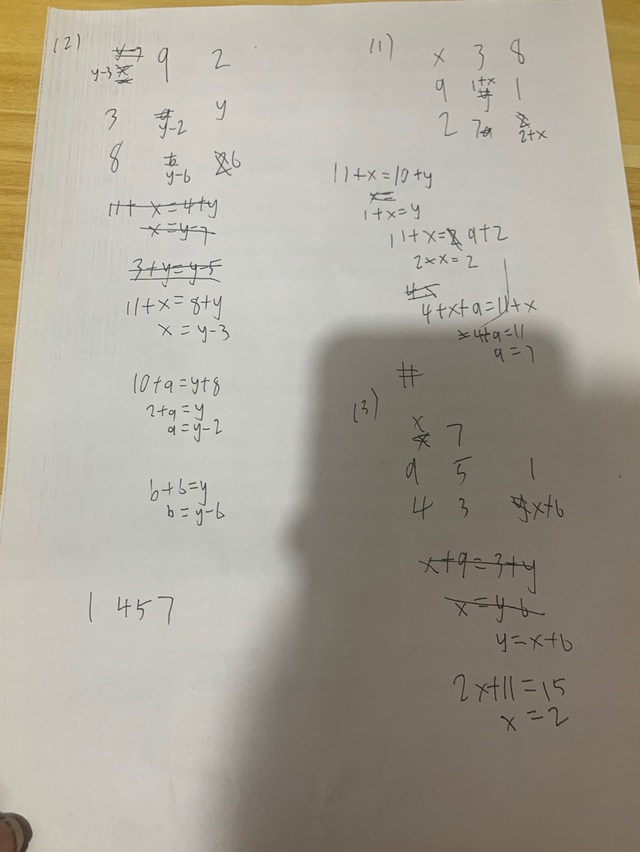 (2)
9 2
y-3
3 y
y-2
8 6
y-6
11+ x=4+y
x=y-7
3+y=y-5
11+x=8+y
x=y-3
10+a=y+8
2+a=y
a=y-2
b+6=y
b=y-6
1 457
(1)
x 3 8
9 1+x 1
2 7
2+x
11+x=10+y
1+x=y
11+x= 9+2
2+x=2
4+x+a=11+x
4+a=11
a=7
#
(3)
x 7
9 5 1
4 3 x+6
x+9=3+y
x=y-6
y=x+6
2x+11=15
x=2